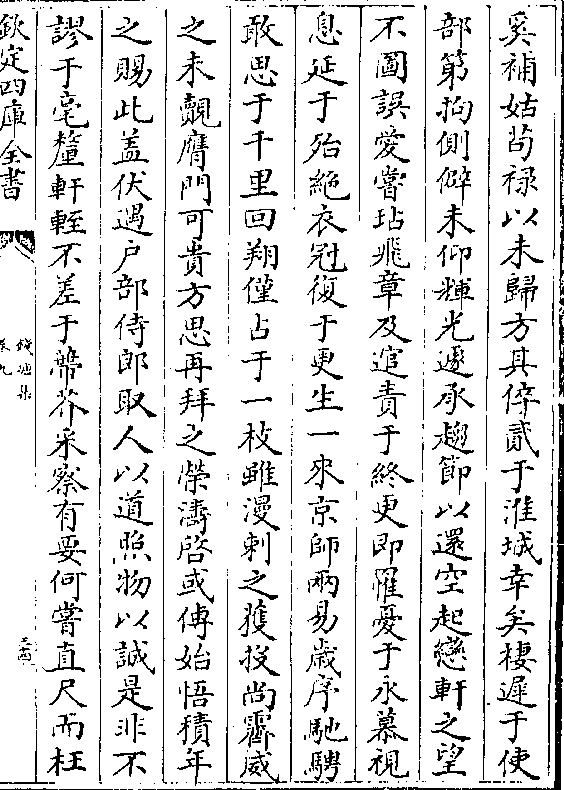 奚補姑茍禄以未歸方其倅貳于淮城幸矣棲遲于使
部第拘側僻未仰輝光遽承趨節以還空起戀軒之望
不圖誤愛嘗玷飛章及逭責于終更即罹憂于永慕視
息延于殆絶衣冠復于更生一來京師兩易歳序馳騁
敢思于千里回翔僅占于一枝雖漫刺之獲投尚霽威
之未覿膺門可貴方思再拜之榮濤啓或傳始悟積年
之賜此蓋伏遇户部侍郎取人以道照物以誠是非不
謬于毫釐軒輊不差于蔕芥采察有要何嘗直尺而枉
欽定四庫全書
錢塘集
卷九